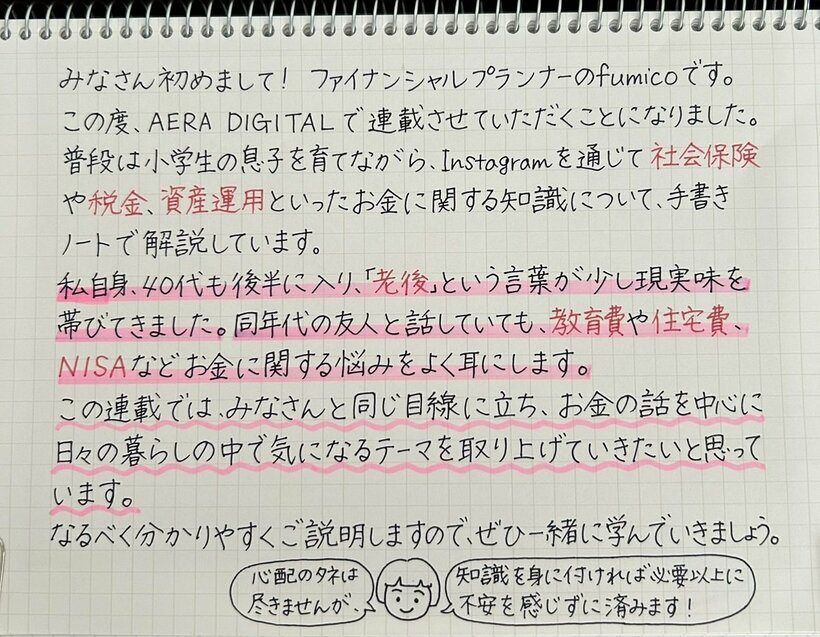 みなさん初めまして! ファイナンシャルプランナーのfumicoです。
この度、AERA DIGITALで連載させていただくことになりました。
普段は小学生の息子を育てながら、Instagramを通じて社会保険
や税金、資産運用といったお金に関する知識について、手書き
ノートで解説しています。
私自身、40代も後半に入り、「老後」という言葉が少し現実味を
帯びてきました。同年代の友人と話していても、教育費や住宅費、
NISAなどお金に関する悩みをよく耳にします。
この連載では、みなさんと同じ目線に立ち、お金の話を中心に
日々の暮らしの中で気になるテーマを取り上げていきたいと思って
います。
なるべく分かりやすくご説明しますので、ぜひ一緒に学んでいきましょう。
心配のタネは
尽きませんが、
知識を身に付ければ必要以上に
不安を感じずに済みます!